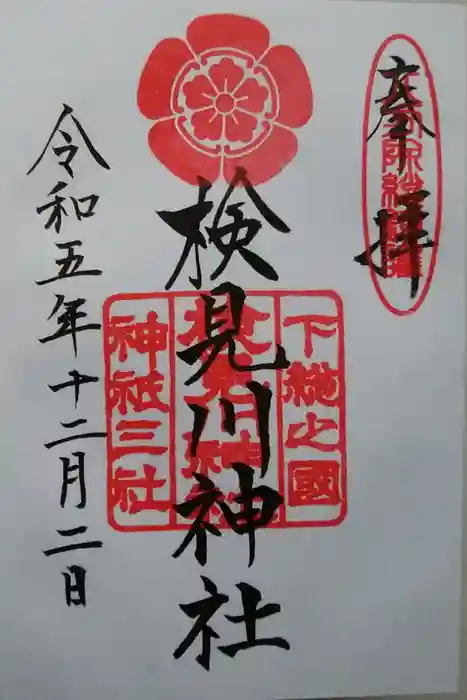 奉拝
下総之國
検見川神社
神祇三社
令和五年十二月二日